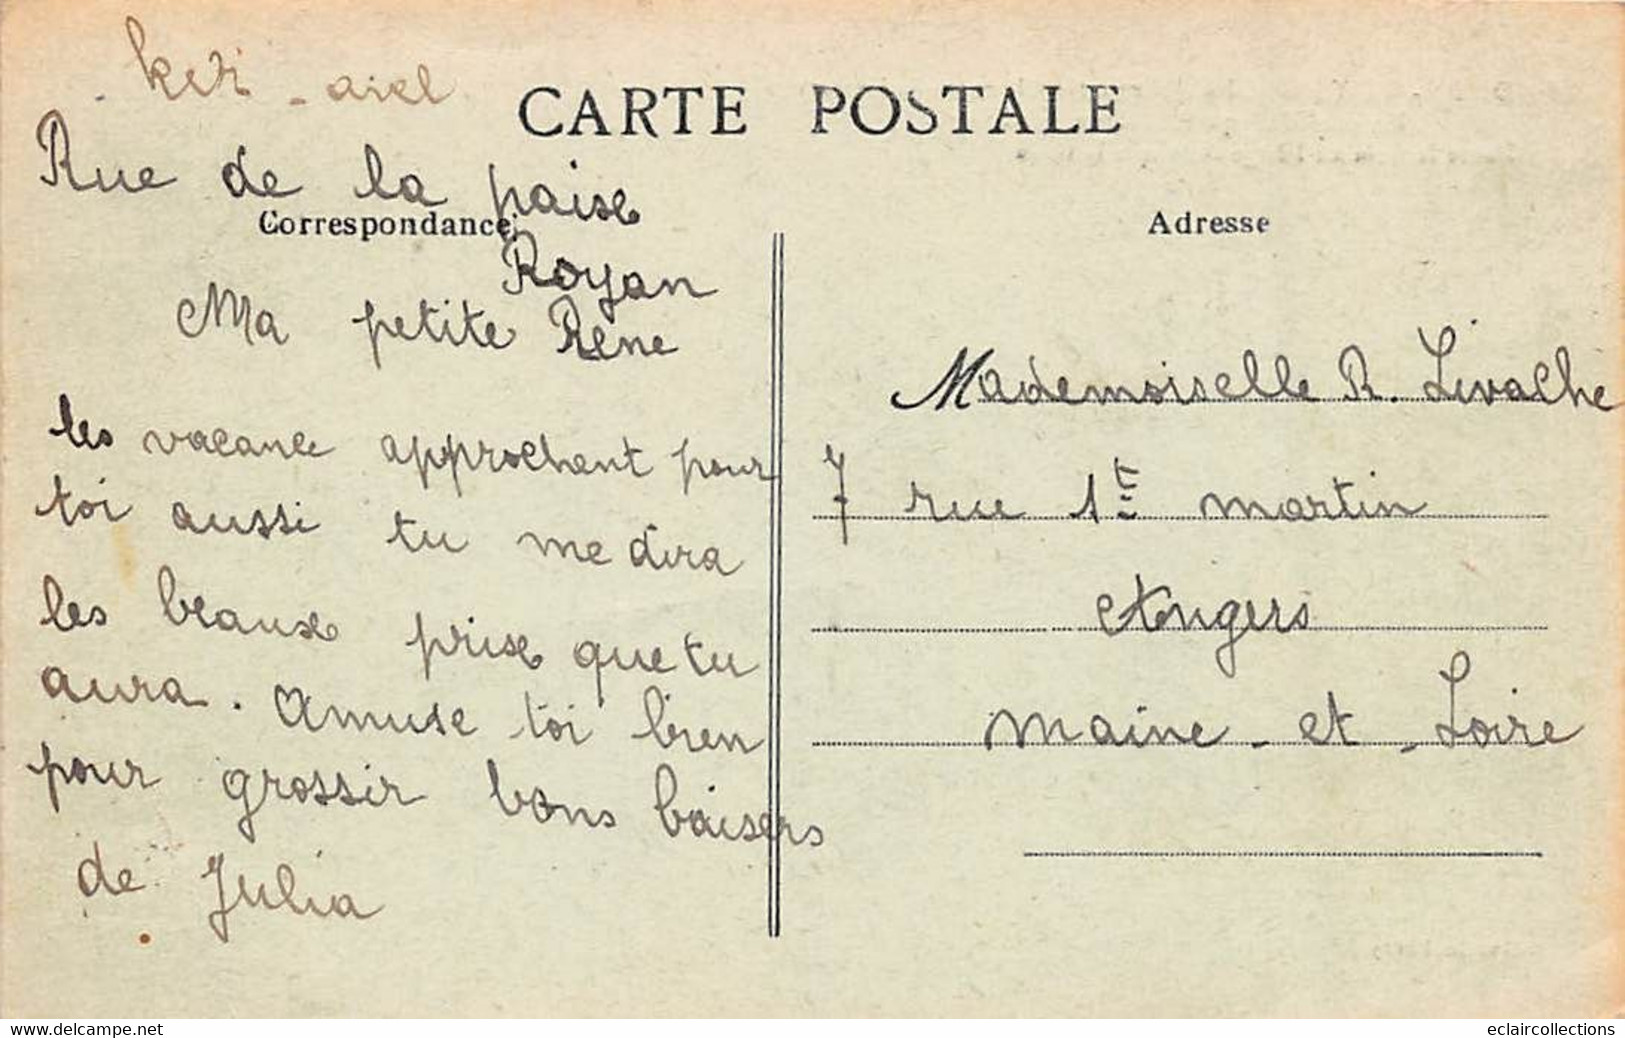 CARTE POSTALE
- ker - aiel
Rue de la paise
Correspondance
Royan
Ma petite Rene
les vacance approchent pour
toi aussi tu me dira
les beause prise que tu
aura. Amuse toi bien
pour grossir bons baisers
de Julia
Adresse
Mademoiselle R. Livache
7 rue 1t martin
Angers
Maine - et - Loire
www.delcampe.net
eclaircollections